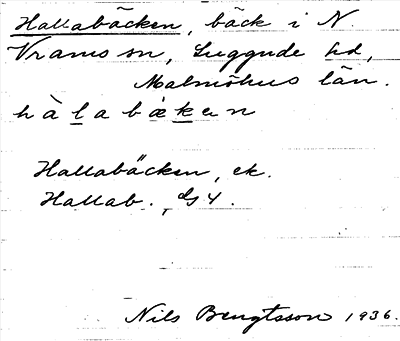 Hallabäcken, bäck i N.
Vrams sn, Luggude hd,
Malmöhus län.
hàlabækɐn
Hallabäcken, ek.
Hallab., GS 4.
Nils Bengtsson 1936.